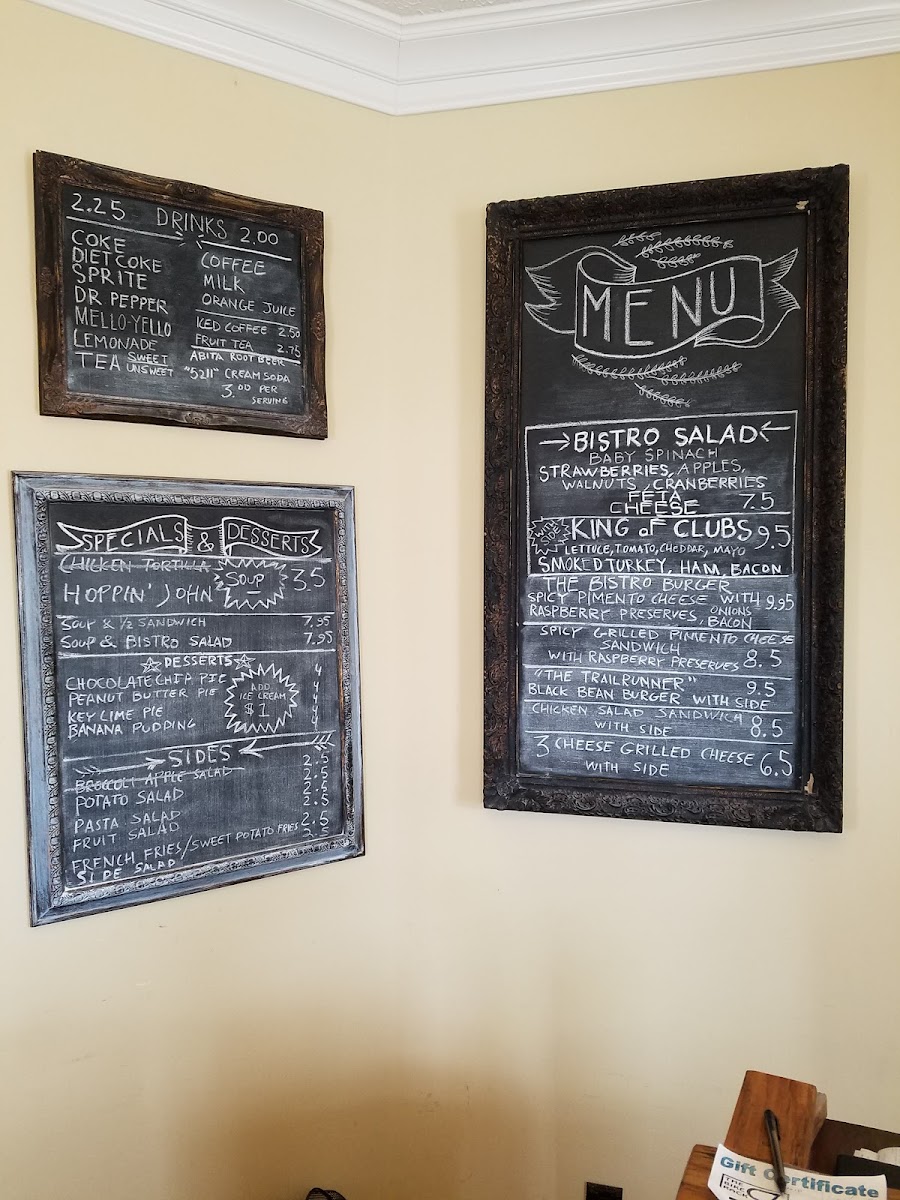 2.25 DRINKS 2.00
COKE
DIET COKE
SPRITE
DR PEPPER
MELLO-YELLO
LEMONADE
TEA SWEET
UNSWEET
COFFEE
MILK
ORANGE JUICE
ICED COFFEE 2.50
FRUIT TEA 2.75
ABITA ROOT BEER
"5211" CREAM SODA
3.00 PER
SERVING
SPECIALS & DESSERTS
CHICKEN TORTILLA
HOPPIN' JOHN
SOUP
3.5
SOUP & 1/2 SANDWICH 7.95
SOUP & BISTRO SALAD 7.95
DESSERTS
CHOCOLATE CHIP PIE 4
PEANUT BUTTER PIE 4
KEY LIME PIE 4
BANANA PUDDING 4
ADD
ICE CREAM
$1
SIDES
BROCCOLI APPLE SALAD 2.5
POTATO SALAD 2.5
PASTA SALAD 2.5
FRUIT SALAD 2.5
FRENCH FRIES/SWEET POTATO FRIES 2.5
SIDE SALAD
MENU
BISTRO SALAD
BABY SPINACH
STRAWBERRIES, APPLES,
WALNUTS, CRANBERRIES
FETA
CHEESE 7.5
WITH
SIDE
KING of CLUBS 9.5
LETTUCE, TOMATO, CHEDDAR, MAYO
SMOKED TURKEY, HAM, BACON
THE BISTRO BURGER
SPICY PIMENTO CHEESE WITH 9.95
RASPBERRY PRESERVES, ONIONS
BACON
SPICY GRILLED PIMENTO CHEESE
SANDWICH
WITH RASPBERRY PRESERVES 8.5
"THE TRAILRUNNER"
BLACK BEAN BURGER WITH SIDE 9.5
CHICKEN SALAD SANDWICH
WITH SIDE 8.5
3 CHEESE GRILLED CHEESE
WITH SIDE 6.5
Gift Certificate